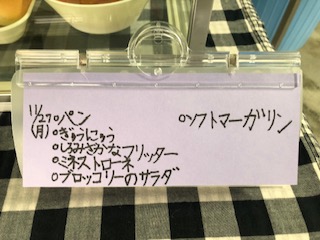 11/27○パン
(月)○ぎゅうにゅう
○しろみざかなフリッター
○ミネストローネ
○ブロッコリーのサラダ
○ソフトマーガリン